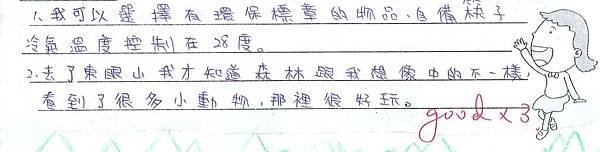 1.我可以選擇有環保標章的物品、自備筷子
冷氣溫度控制在28度。
2.去了東眼山我才知道森林跟我想像中的不一樣,
看到了很多小動物,那裡很好玩。
good x 3